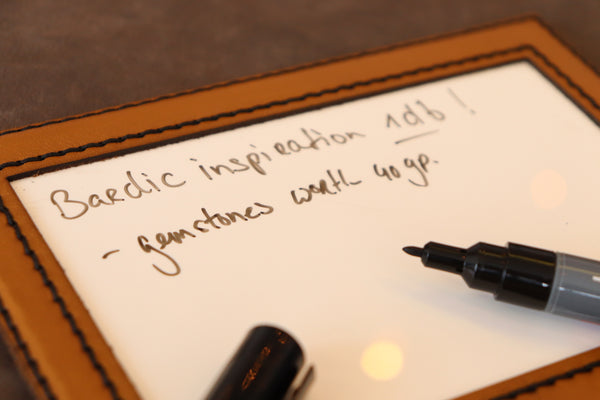 Bardic inspiration 1d6!
- gemstones worth 40 gp.